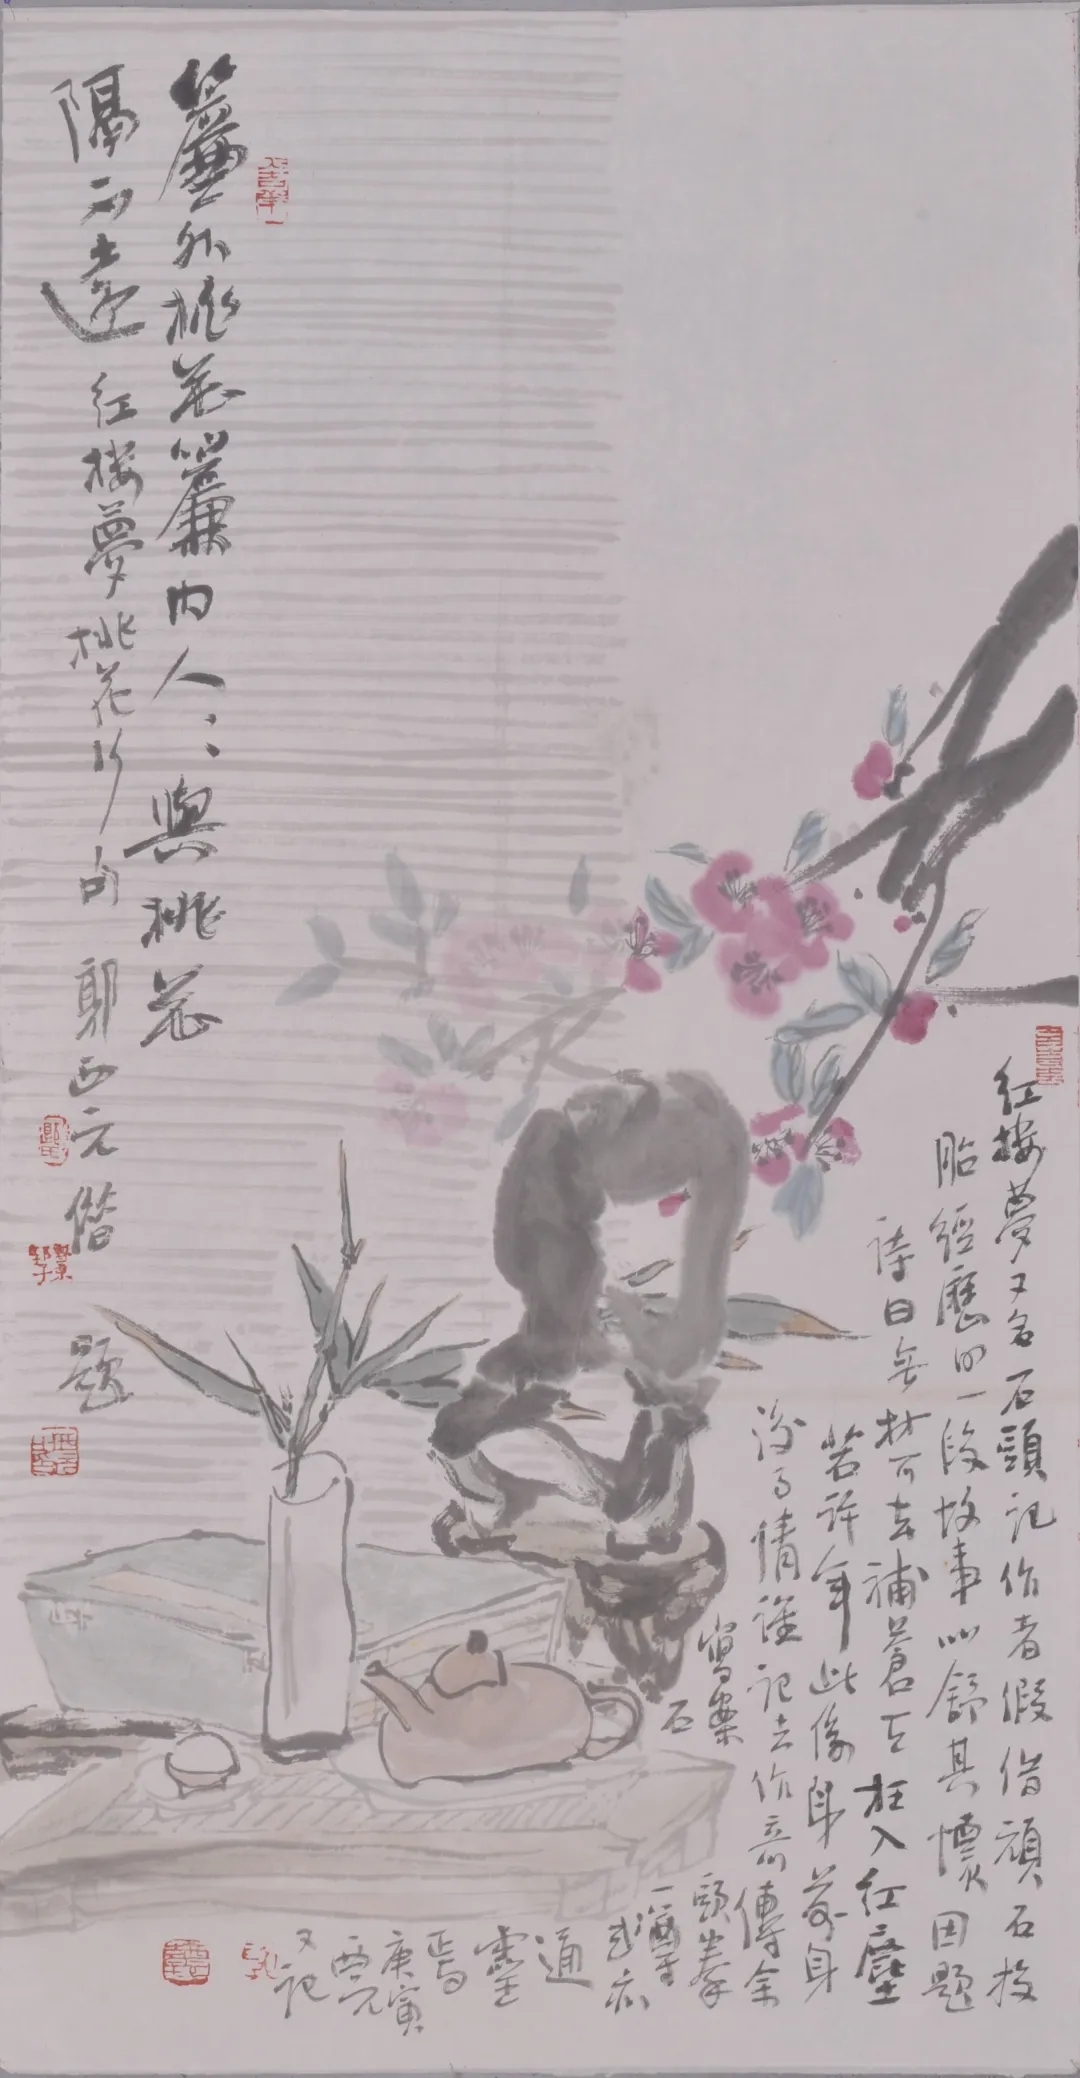 簾外桃花簾内人〻與桃花
隔不遠 紅樓夢桃花行句 郭西元偕題
紅樓夢又名石頭記作者假借頑石投
胎經歷的一段故事以舒其懷因題
詩曰無材可去補蒼天枉入紅塵
若許年此係身前身
後事情誰記去作奇傳余
寫案頭拳
石一尊
或亦
通
靈
焉
庚寅
西元
又記